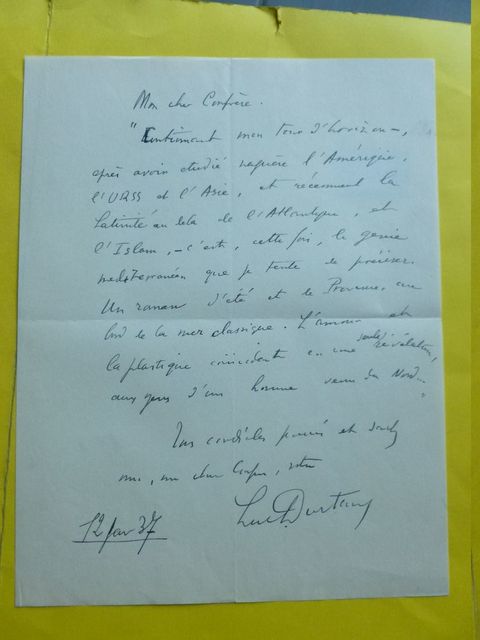 Mon cher Confrère.
"Continuant mon tour d'horizon –,
après avoir étudié naguère l'Amérique,
l'URSS et l'Asie, et récemment la
Latinité au delà de l'Atlantique, et
l'Islam, – c'est, cette fois, le génie
méditerranéen que je tente de préciser.
Un roman d'été et de Provence, au
bord de la mer classique. L'amour et
la plastique coïncidant en une seule révélation,
aux yeux d'un homme venu du Nord..."
cordiales et
moi, mon cher Confrère, votre
Luc Durtain
12 fév 37